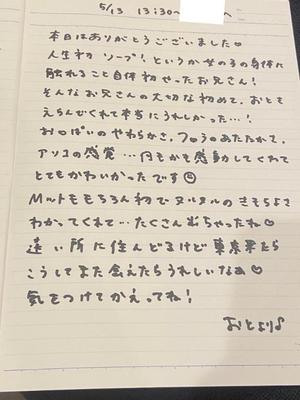 5/13 13:30〜 へ
本日はありがとうございました♡
人生初 ソープ！というか女の子の身体に
触れること自体初やったお兄さん！
そんなお兄さんの大切な初めて、おとを
えらんでくれて本当にうれしかった…！
おっぱいのやわらかさ、フロウのあたたかさ、
アソコの感覚…何もかも感動してくれて
とてもかわいかったです
Mットももちろん初でヌルヌルのきもちよさ
わかってくれて…たくさん出ちゃったね♡
遠い所に住んどるけど東京来たら
こうしてまた会えたらうれしいなぁ♡
気をつけてかえってね！
おとより